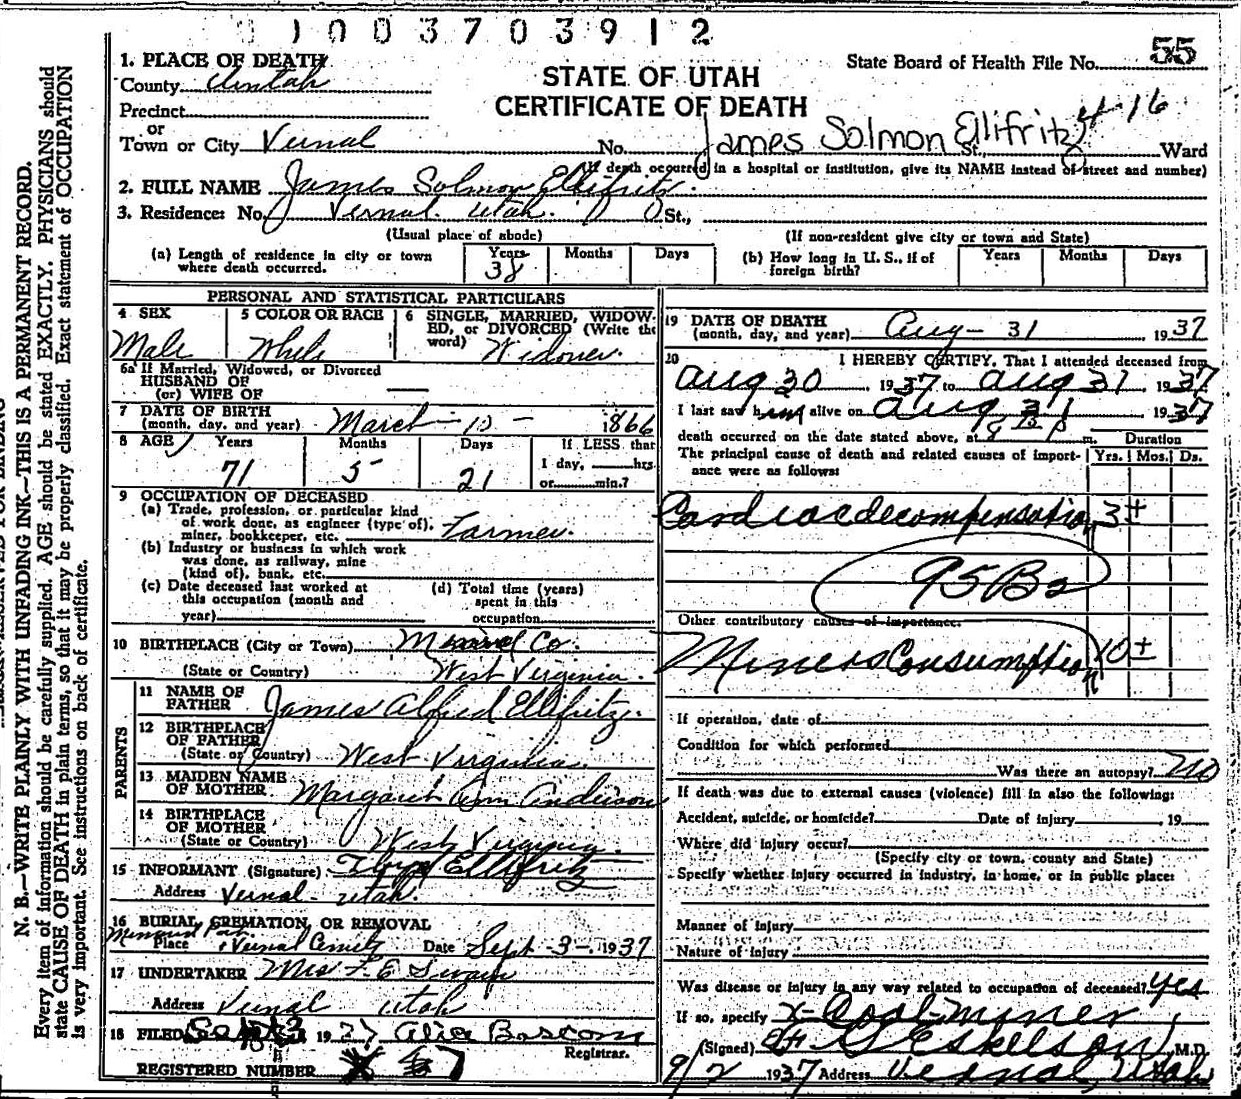 1003703912
1. PLACE OF DEATH
State Board of Health File No. 55
County Uintah
STATE OF UTAH
CERTIFICATE OF DEATH
Precinct
or
Town or City Vernal No. James Solmon Ellifritz St., Ward
4-16
(If death occurred in a hospital or institution, give its NAME instead of street and number)
2. FULL NAME James Solmon Ellifritz.
3. Residence: No. Vernal. Utah. St.,
(Usual place of abode) (If non-resident give city or town and State)
(a) Length of residence in city or town where death occurred. Years 38 Months Days
(b) How long in U. S., if of foreign birth? Years Months Days
PERSONAL AND STATISTICAL PARTICULARS
4 SEX Male
5 COLOR OR RACE White
6 SINGLE, MARRIED, WIDOWED, or DIVORCED (Write the word) Widower.
6a If Married, Widowed, or Divorced
HUSBAND OF
(or) WIFE OF —
7 DATE OF BIRTH
(month, day, and year) March - 10 - 1866
8 AGE Years 71 Months 5 Days 21 If LESS than 1 day, hrs. or min.?
9 OCCUPATION OF DECEASED
(a) Trade, profession, or particular kind of work done, as engineer (type of), miner, bookkeeper, etc. Farmer.
(b) Industry or business in which work was done, as railway, mine (kind of), bank, etc.
(c) Date deceased last worked at this occupation (month and year)
(d) Total time (years) spent in this occupation
10 BIRTHPLACE (City or Town) Mineral Co.
(State or Country) West Virginia.
PARENTS
11 NAME OF FATHER James Alfred Ellifritz.
12 BIRTHPLACE OF FATHER
(State or Country) West Virginia.
13 MAIDEN NAME OF MOTHER Margaret Ann Anderson
14 BIRTHPLACE OF MOTHER
(State or Country) West Virginia.
15 INFORMANT (Signature) Ellifritz
Address Vernal - Utah.
16 BURIAL, CREMATION, OR REMOVAL
Place Vernal Date Sept - 3 - 1937
17 UNDERTAKER Mrs F. E. Swain
Address Vernal Utah
18 FILED 1937 Alice Bascom
Registrar.
REGISTERED NUMBER 7
19 DATE OF DEATH
(month, day, and year) Aug - 31 1937
20 I HEREBY CERTIFY, That I attended deceased from
Aug 30, 1937 to Aug 31 1937
I last saw him alive on Aug 31 1937
death occurred on the date stated above, at 8 P m. Duration
The principal cause of death and related causes of importance were as follows: Yrs. Mos. Ds.
Cardiac decompensation 3±
95B2
Other contributory causes of importance.
Miners Consumption 10±
If operation, date of
Condition for which performed
Was there an autopsy? No
If death was due to external causes (violence) fill in also the following:
Accident, suicide, or homicide? Date of injury 19
Where did injury occur?
(Specify city or town, county and State)
Specify whether injury occurred in industry, in home, or in public place:
Manner of injury
Nature of injury
Was disease or injury in any way related to occupation of deceased? yes
If so, specify x-Coal-miner
(Signed) Eskelson, M.D.
9/2 1937 Address Vernal, Utah
N. B.—WRITE PLAINLY WITH UNFADING INK—THIS IS A PERMANENT RECORD.
Every item of information should be carefully supplied. AGE should be stated EXACTLY. PHYSICIANS should
state CAUSE OF DEATH in plain terms, so that it may be properly classified. Exact statement of OCCUPATION
is very important. See instructions on back of certificate.